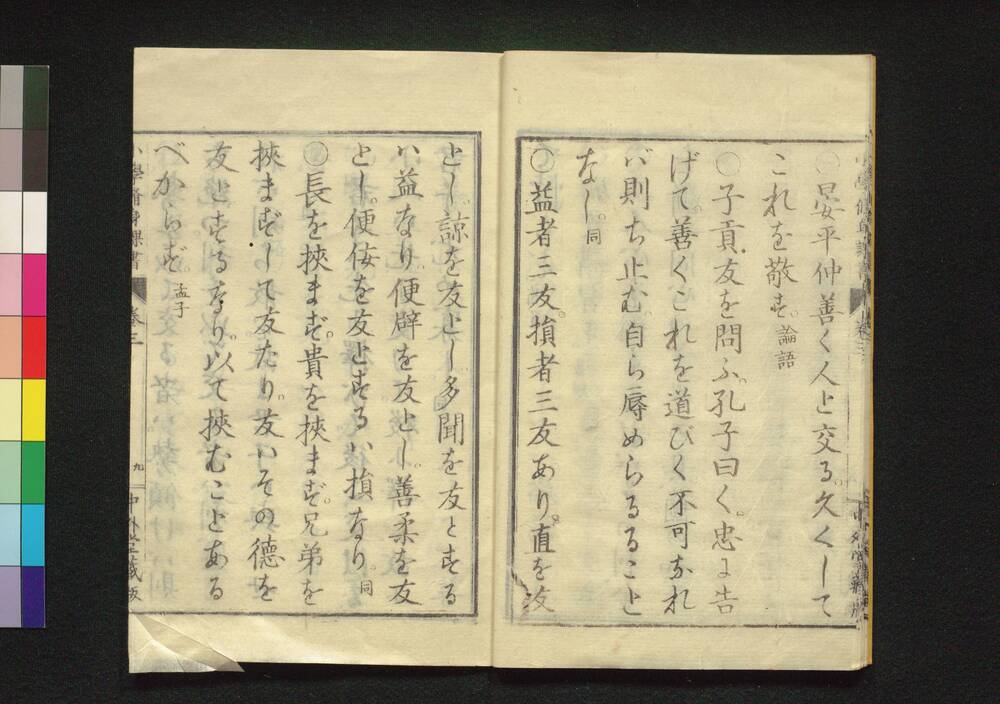 〇晏平仲善く人と交る。久くして
これを敬す。論語
〇子貢友を問ふ。孔子曰く。忠に告
げて善くこれを道びく不可なれ
ば則ち止む。自ら辱めらるること
なし。同
〇益者三友。損者三友あり。直を友
とし。諒を友とし。多聞を友とする
は益なり。便辟を友とし。善柔を友
とし。便佞を友とするは損なり。同
〇長を挾まず。貴を挾まず。兄弟を
挾まずして友たり。友はその德を
友とするなり。以て挾むことある
べからず。孟子
小學脩身課書
卷三
九
中外堂藏版